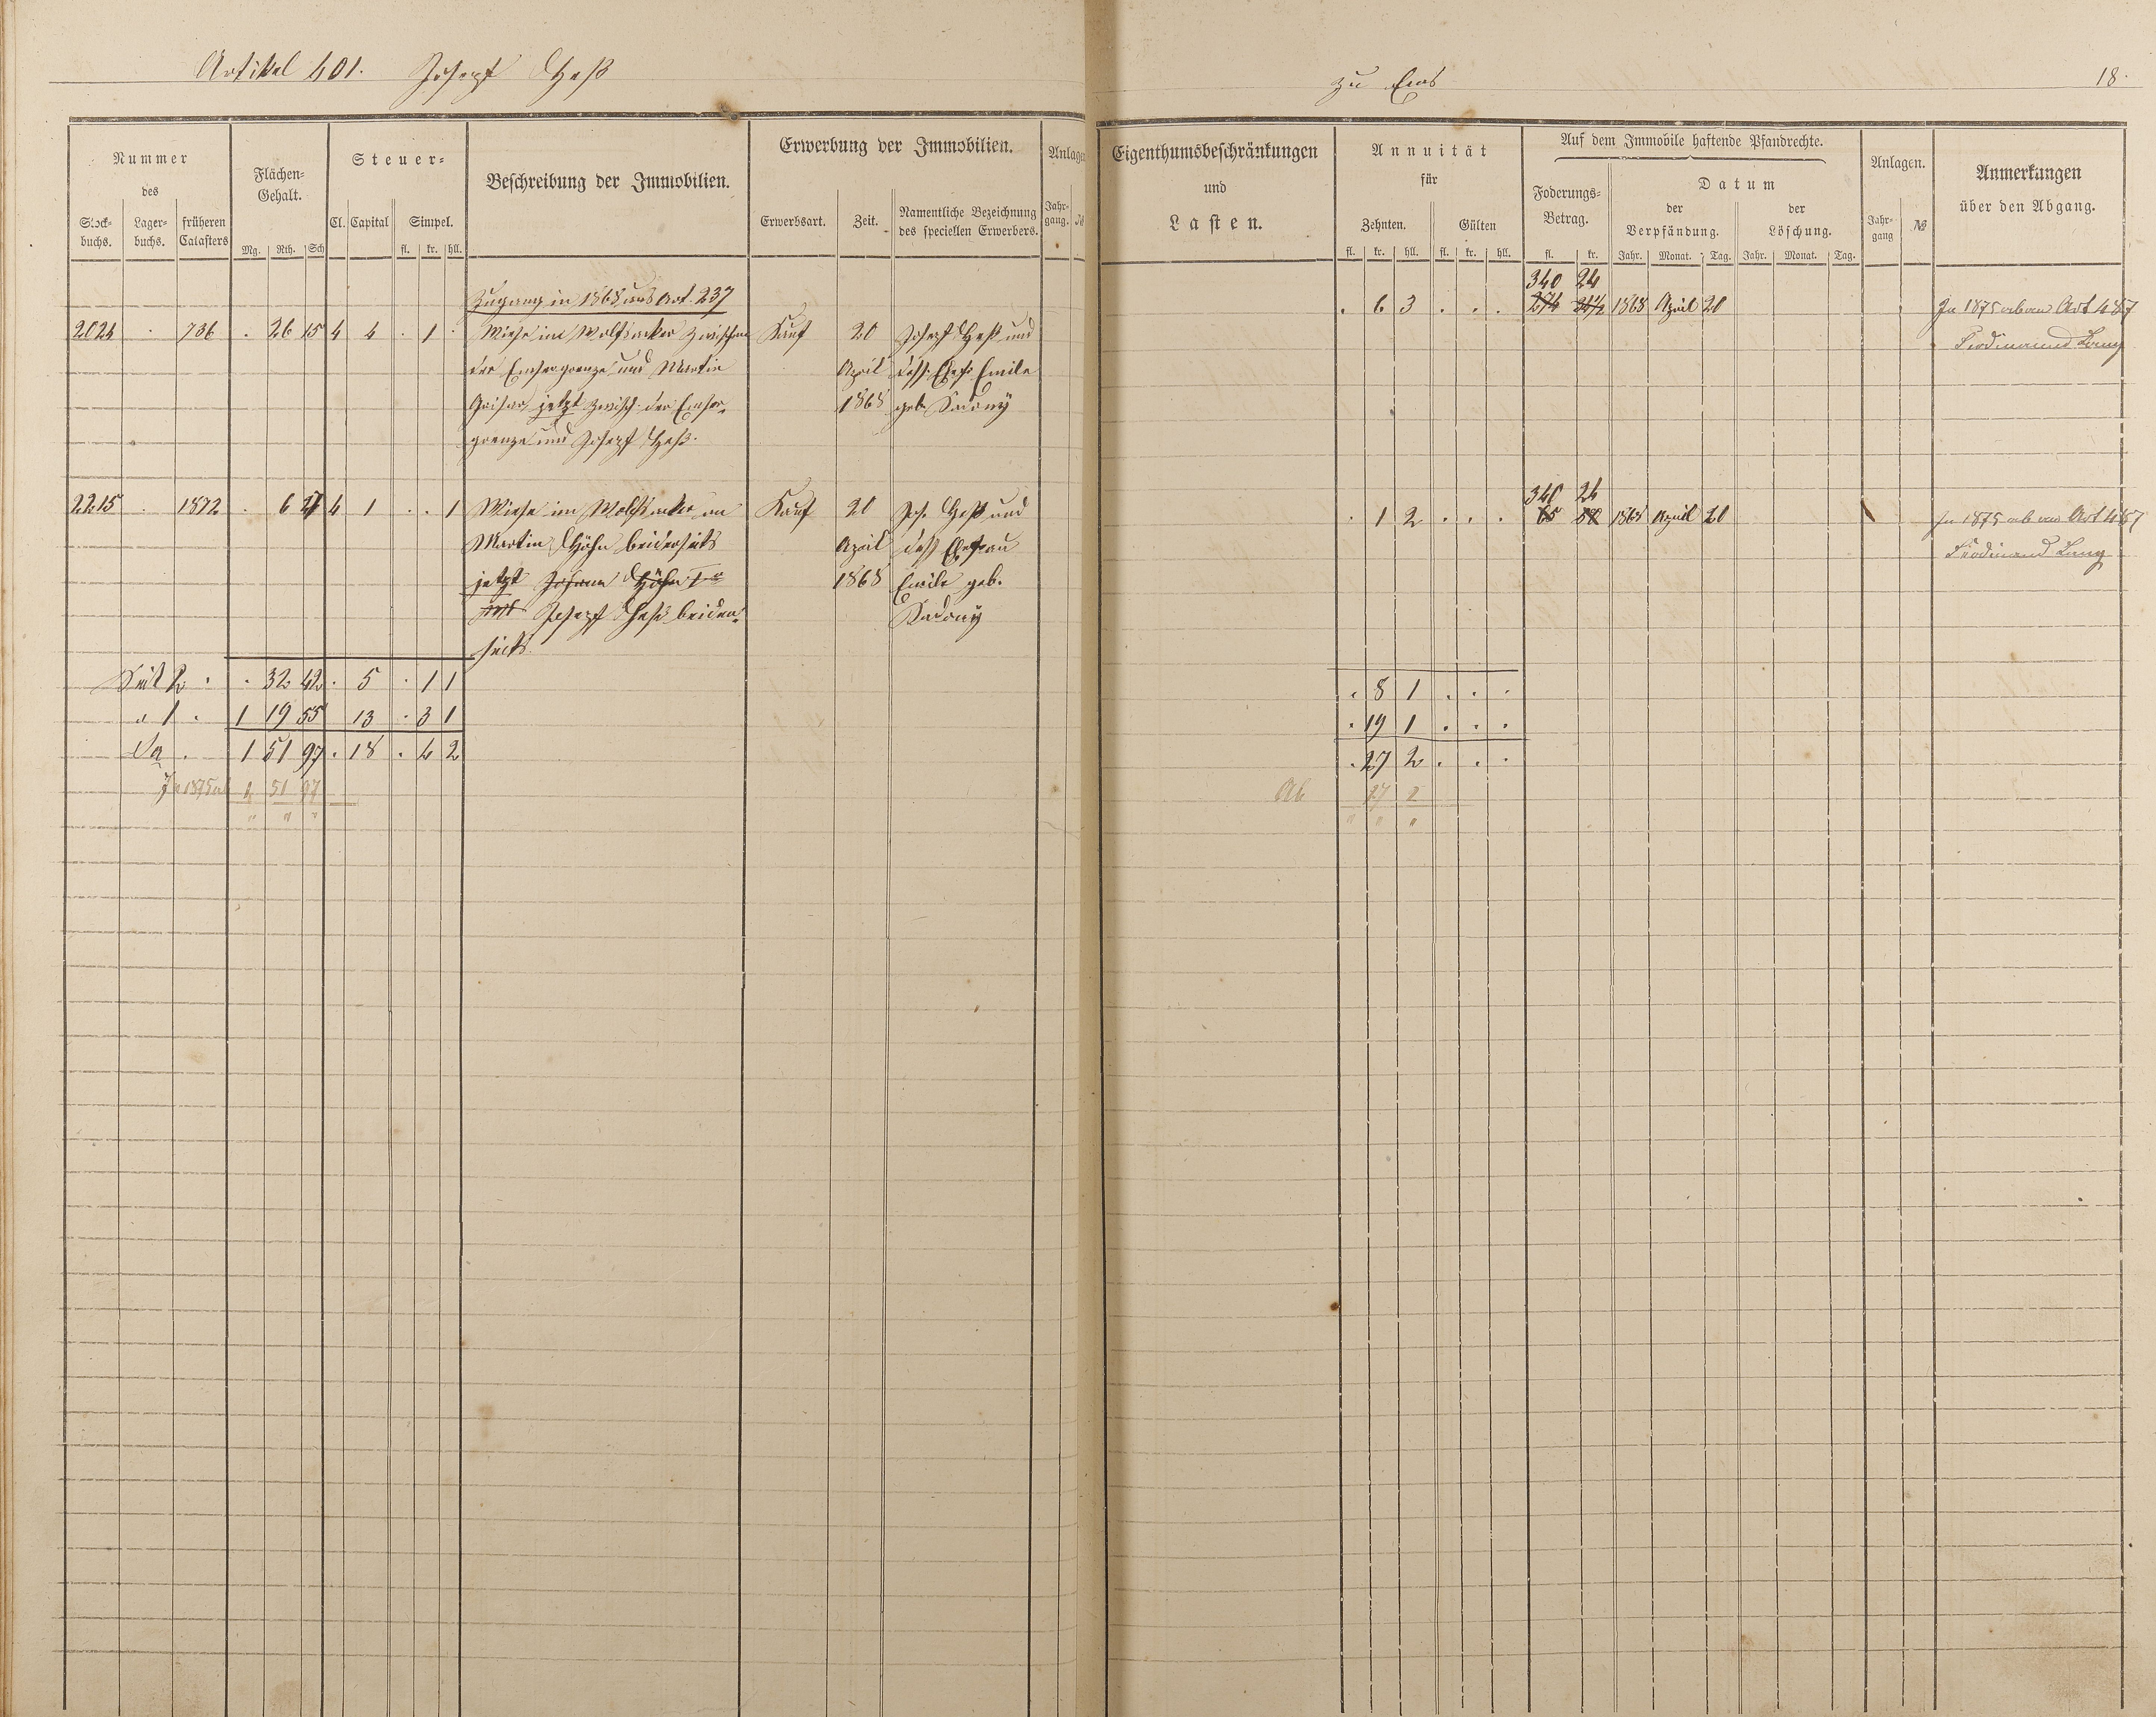 Artikel 401. Joseph Heß
zu Ems
18.
Nummer
des
Stock-
buchs.
Lager-
buchs.
früheren
Catasters
Flächen-
Gehalt.
Mg. Rth. Sch
Steuer-
Cl. Capital Simpel.
fl. kr. hll.
Beschreibung der Immobilien.
Erwerbung der Immobilien.
Erwerbsart. Zeit. Namentliche Bezeichnung
des speciellen Erwerbers.
Anlagen
Jahr-
gang. №
Zugang in 1868 aus Art. 237
2024 . 736 . 26 15 4 4 . 1 . Wiese im Wolfsacker zwischen Kauf 20 Joseph Heß und
der Emsergrenze und Martin April dess. Ehefr. Emile
jetzt zwisch. der Emser- 1868 geb.
grenze und Joseph Heß.
2215 . 1872 . 6 27 4 1 . . 1 Wiese im Wolfsacker an Kauf 20 Jos. Heß und
Martin Höhn beiderseits April dess Ehefrau
jetzt Johann Höhn 1868 Emile geb.
und Joseph Heß beider-
seits.
Seit 2 . . 32 42 . 5 . 1 1
" 1 . 1 19 55 13 . 3 1
Sa . 1 51 97 . 18 . 4 2
In 1875 ab 1 51 97
" " "
Eigenthumsbeschränkungen
und
Lasten.
Annuität
für
Zehnten. Gülten
fl. kr. hll. fl. kr. hll.
Auf dem Immobile haftende Pfandrechte.
Foderungs-
Betrag.
fl. kr.
Datum
der
Verpfändung.
Jahr. Monat. Tag.
der
Löschung.
Jahr. Monat. Tag.
Anlagen.
Jahr-
gang №
Anmerkungen
über den Abgang.
340 24
. 6 3 . . . 274 1868 April 20 In 1875 ab an Art 487
Ferdinand Lang
340 24
. 1 2 . . . 65 1868 April 20 In 1875 ab an Art 487
Ferdinand Lang
. 8 1 . . .
. 19 1 . . .
. 27 2 . . .
Ab 27 2
" " "